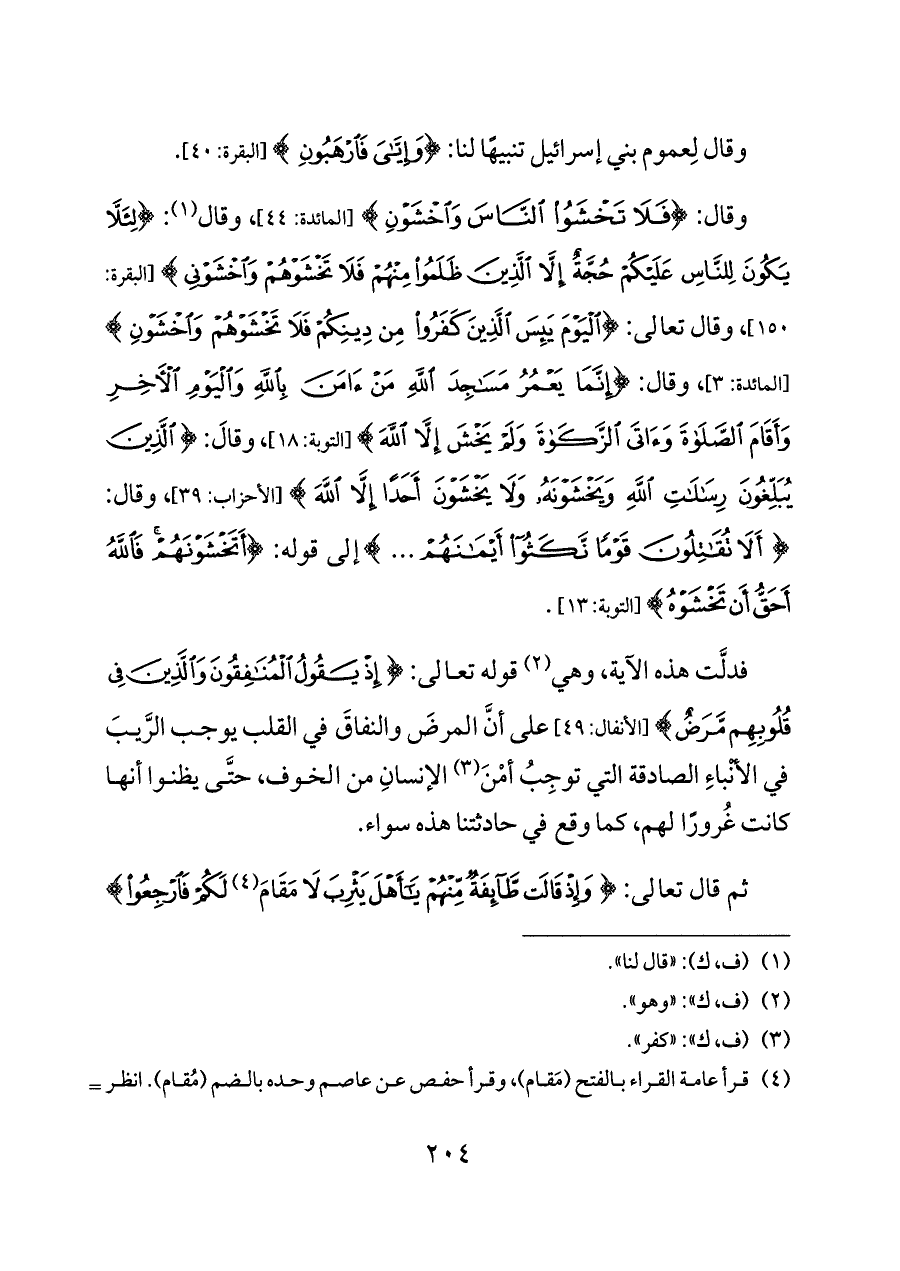 وقال لِعموم بني إسرائيل تنبيهًا لنا: ﴿وَإِيَّٰيَ فَٱرۡهَبُونِ ﴾ [البقرة: ٤٠].
وقال: ﴿فَلَا تَخۡشَوُاْ ٱلنَّاسَ وَٱخۡشَوۡنِ ﴾ [المائدة: ٤٤]، وقال(١): ﴿لِئَلَّا
يَكُونَ لِلنَّاسِ عَلَيۡكُمۡ حُجَّةٌ إِلَّا ٱلَّذِينَ ظَلَمُواْ مِنۡهُمۡ فَلَا تَخۡشَوۡهُمۡ وَٱخۡشَوۡنِي ﴾ [البقرة:
١٥٠]، وقال تعالى: ﴿ٱلۡيَوۡمَ يَئِسَ ٱلَّذِينَ كَفَرُواْ مِن دِينِكُمۡ فَلَا تَخۡشَوۡهُمۡ وَٱخۡشَوۡنِ ﴾
[المائدة: ٣]، وقال: ﴿إِنَّمَا يَعۡمُرُ مَسَٰجِدَ ٱللَّهِ مَنۡ ءَامَنَ بِٱللَّهِ وَٱلۡيَوۡمِ ٱلۡأٓخِرِ
وَأَقَامَ ٱلصَّلَوٰةَ وَءَاتَى ٱلزَّكَوٰةَ وَلَمۡ يَخۡشَ إِلَّا ٱللَّهَ ﴾ [التوبة: ١٨]، وقالَ: ﴿ ٱلَّذِينَ
يُبَلِّغُونَ رِسَٰلَٰتِ ٱللَّهِ وَيَخۡشَوۡنَهُۥ وَلَا يَخۡشَوۡنَ أَحَدًا إِلَّا ٱللَّهَ ﴾ [الأحزاب: ٣٩]، وقال:
﴿ أَلَا تُقَٰتِلُونَ قَوۡمٗا نَّكَثُوٓاْ أَيۡمَٰنَهُمۡ ... ﴾ إلى قوله: ﴿أَتَخۡشَوۡنَهُمۡۚ فَٱللَّهُ
أَحَقُّ أَن تَخۡشَوۡهُ﴾ [التوبة: ١٣] .
فدلَّت هذه الآية، وهي(٢) قوله تعالى: ﴿ إِذۡ يَقُولُ ٱلۡمُنَٰفِقُونَ وَٱلَّذِينَ فِي
قُلُوبِهِم مَّرَضٌ ﴾ [الأنفال: ٤٩] على أنَّ المرضَ والنفاقَ في القلب يوجب الرَّيبَ
في الأنْباءِ الصادقة التي توجِبُ أمْنَ(٣) الإنسانِ من الخوف، حتَّى يظنوا أنها
كانت غُرورًا لهم، كما وقع في حادثتنا هذه سواء.
ثم قال تعالى: ﴿ وَإِذۡ قَالَت طَّآئِفَةٞ مِّنۡهُمۡ يَٰٓأَهۡلَ يَثۡرِبَ لَا مَقَامَ(٤) لَكُمۡ فَٱرۡجِعُواْ﴾
(١) (ف، ك): «قال لنا».
(٢) (ف، ك»: «وهو».
(٣) (ف، ك»: «كفر».
(٤) قرأ عامة القراء بالفتح (مَقام)، وقرأ حفص عن عاصم وحده بالضم (مُقام). انظر =
٢٠٤